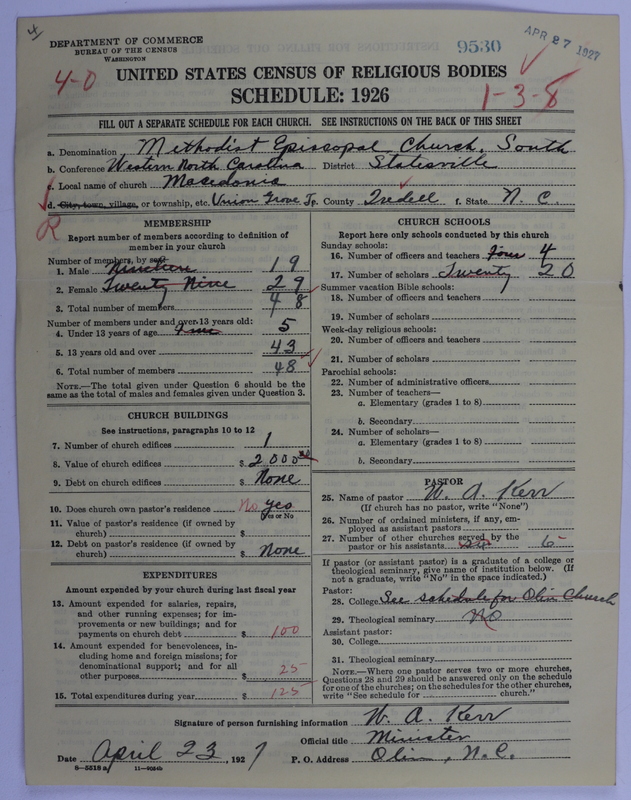 4
DEPARTMENT OF COMMERCE
BUREAU OF THE CENSUS
WASHINGTON
9530
APR 27 1927
4-0
UNITED STATES CENSUS OF RELIGIOUS BODIES
SCHEDULE: 1926
1-3-8
FILL OUT A SEPARATE SCHEDULE FOR EACH CHURCH. SEE INSTRUCTIONS ON THE BACK OF THIS SHEET
a. Denomination Methodist Episcopal Church, South
b. Conference Western North Carolina District Statesville
c. Local name of church Macedonia
d. City, town, village, or township, etc. Union Grove Tp. County Iredell f. State N. C.
R
MEMBERSHIP
Report number of members according to definition of
member in your church
Number of members, by sex:
1. Male Nineteen 19
2. Female Twenty Nine 29
3. Total number of members 48
Number of members under and over 13 years old:
4. Under 13 years of age 5
5. 13 years old and over 43
6. Total number of members 48
NOTE.—The total given under Question 6 should be the
same as the total of males and females given under Question 3.
CHURCH BUILDINGS
See instructions, paragraphs 10 to 12
7. Number of church edifices 1
8. Value of church edifices $ 2000
9. Debt on church edifices $ None
10. Does church own pastor's residence No yes
(Yes or No)
11. Value of pastor's residence (if owned by
church) $
12. Debt on pastor's residence (if owned by
church) $ None
EXPENDITURES
Amount expended by your church during last fiscal year
13. Amount expended for salaries, repairs,
and other running expenses; for im-
provements or new buildings; and for
payments on church debt $ 100
14. Amount expended for benevolences, in-
cluding home and foreign missions; for
denominational support; and for all
other purposes $ 25
15. Total expenditures during year $ 125
CHURCH SCHOOLS
Report here only schools conducted by this church
Sunday schools:
16. Number of officers and teachers Four 4
17. Number of scholars Twenty 20
Summer vacation Bible schools:
18. Number of officers and teachers
19. Number of scholars
Week-day religious schools:
20. Number of officers and teachers
21. Number of scholars
Parochial schools:
22. Number of administrative officers
23. Number of teachers—
a. Elementary (grades 1 to 8)
b. Secondary
24. Number of scholars—
a. Elementary (grades 1 to 8)
b. Secondary
PASTOR
25. Name of pastor W. A. Kerr
(If church has no pastor, write "None")
26. Number of ordained ministers, if any, em-
ployed as assistant pastors
27. Number of other churches served by the
pastor or his assistants six 6
If pastor (or assistant pastor) is a graduate of a college or
theological seminary, give name of institution below. (If
not a graduate, write "No" in the space indicated.)
Pastor:
28. College See schedule for Olin Church
29. Theological seminary No
Assistant pastor:
30. College
31. Theological seminary
NOTE.—Where one pastor serves two or more churches,
Questions 28 and 29 should be answered only on the schedule
for one of the churches; on the schedules for the other churches,
write "See schedule for church."
Signature of person furnishing information W. A. Kerr
Official title Minister
Date April 23, 1927 P. O. Address Olin, N.C.
6-5518 a 11-9024b